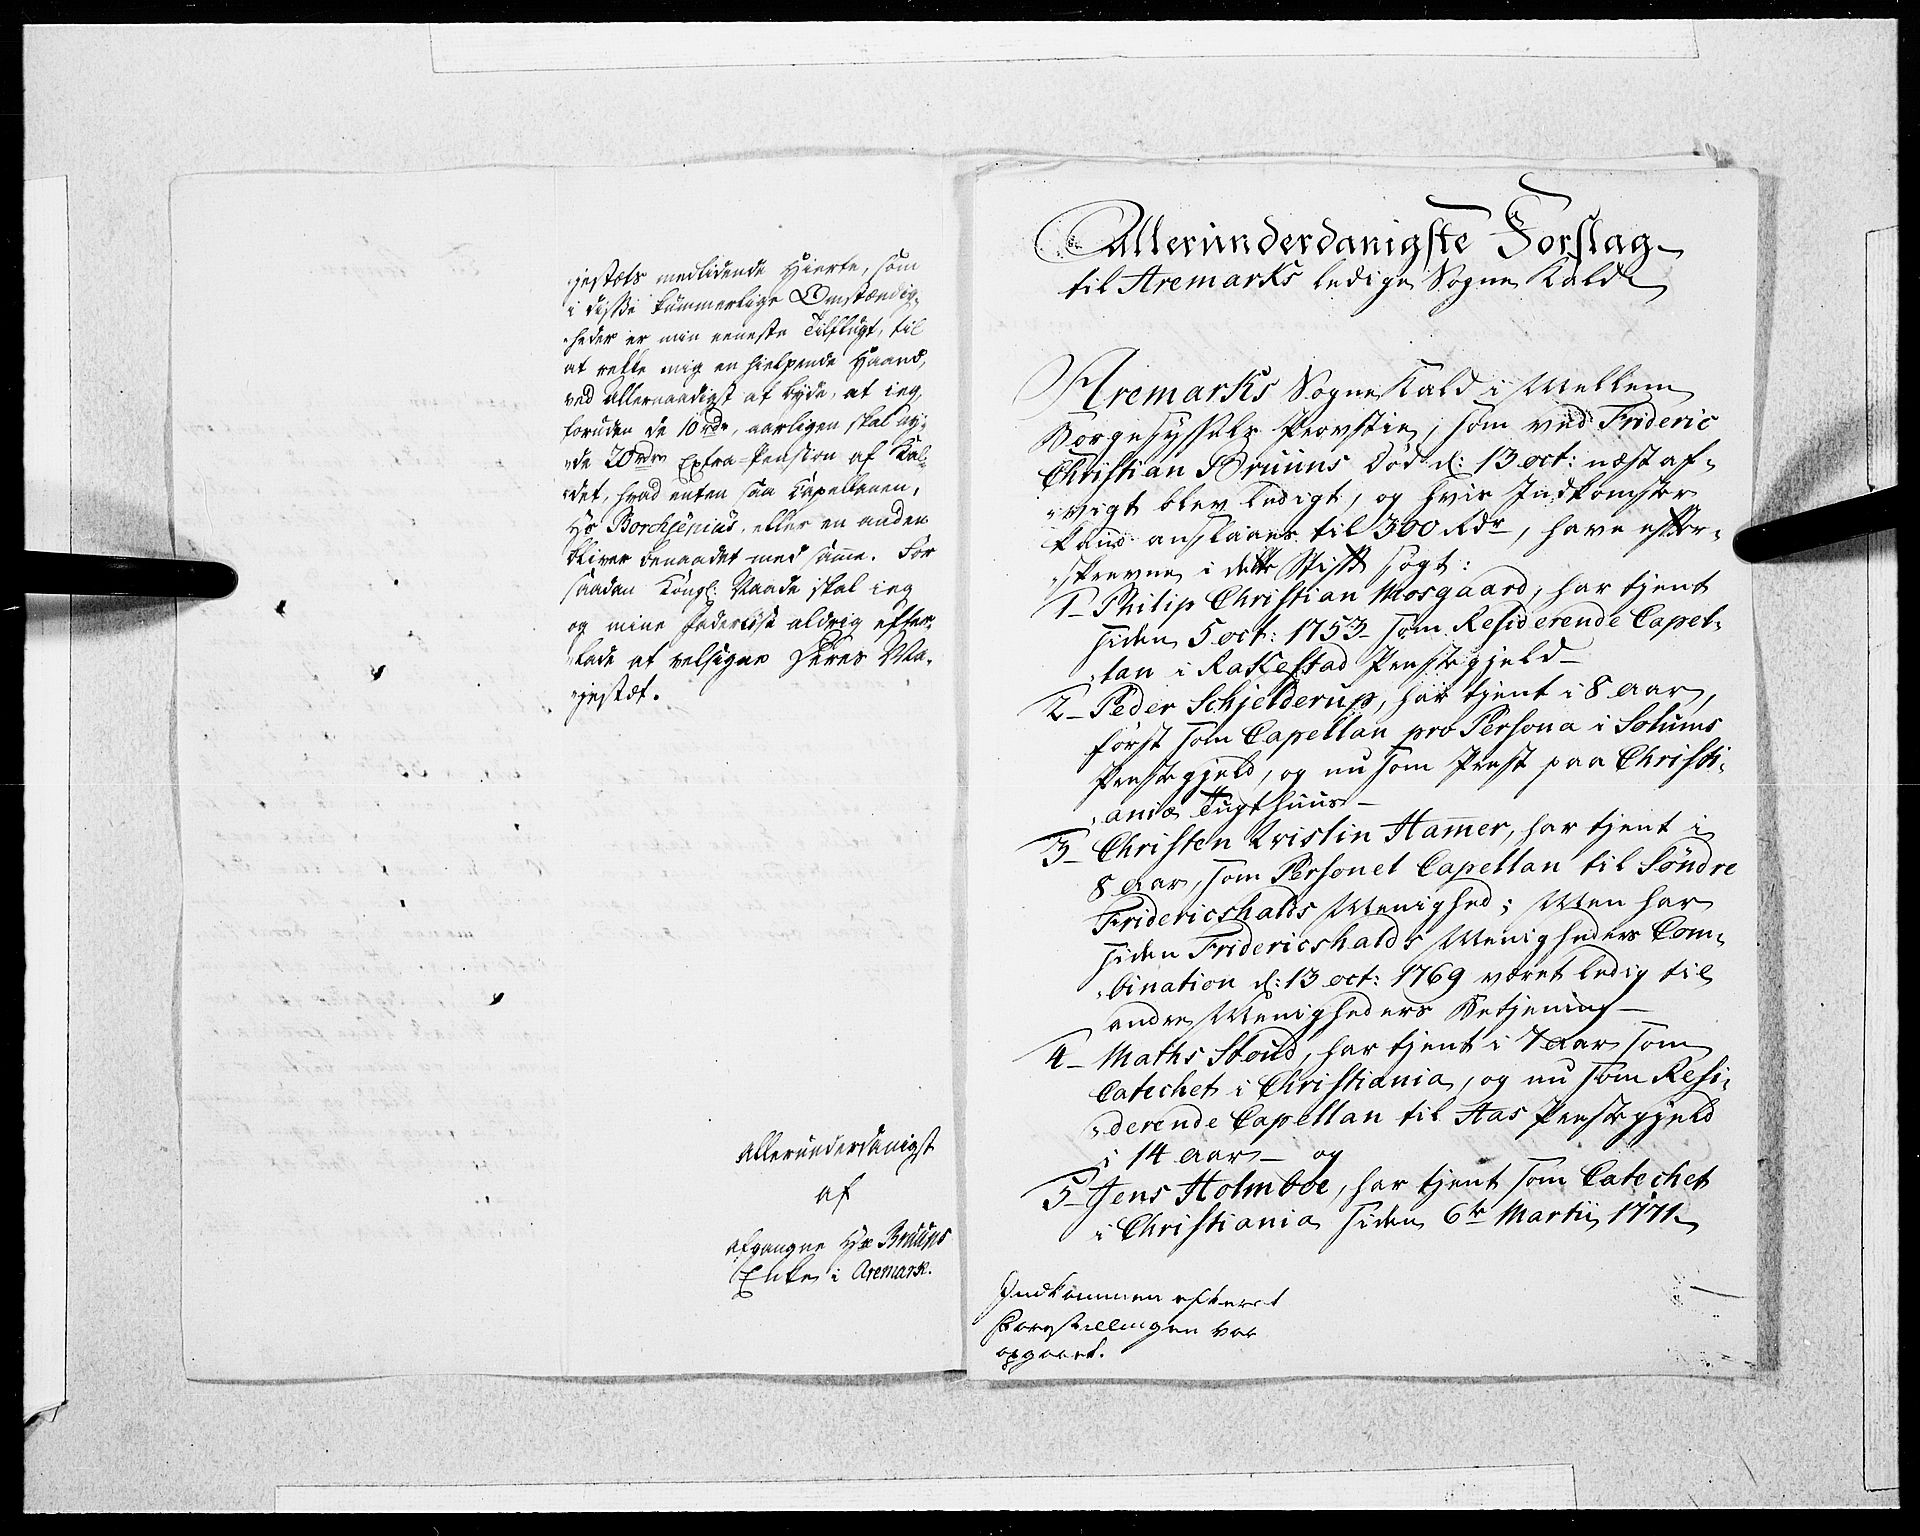 jestæts medlidende Hierte, som
i disse kummerlige Omstændig-
heder er min eneste Tilflugt, til
at rekke mig en hielpende Haand,
ved allernaadigst at byde, at ieg,
foruden de 10 rdr, aarligen skal ny-
de 20 rdr Extra-Pension af Kal-
det, hvad enten saa Capellanen,
Hr Borchsenius, eller en anden
bliver benaadet med samme. For
saadan Kongl: Naade skal ieg
og mine Faderløse aldrig efter-
lade at velsigne Deres Ma-
jestæt.
allerunderdanigst
af
afgangne Hr Bruuns
Enke i Aremark.
Allerunderdanigste Forslag
til Aremarks ledige Sogne Kald
Aremarks Sogne Kald i Mellem
Borgesyssels Provstie, som ved Frideric
Christian Bruuns Død d: 13 oct: næst af-
vigt blev ledigt, og hvis Indkomster
kand anslaaes til 300 Rdr, have efter-
skrevne i dette Stift søgt:
1- Philip Christian Mosgaard, har tjent
siden 5 oct: 1753 som Residerende Capel-
lan i Rakestad Præstegjeld-
2- Peder Schjelderup, har tjent i 8 aar,
først som Capellan pro Persona i Solums
Præstegjeld, og nu som Præst paa Christi-
aniæ Tugthuus-
3- Christen Hamer, har tjent i
8 aar, som Personel Capellan til Søndre
Fridericshalds Menighed; Men har
siden Fridericshalds Menigheders Com-
bination d: 13 oct: 1769 været ledig til
andre Menigheders Betjening-
4- Maths Stoud, har tjent i 7 aar som
Catechet i Christiania, og nu som Resi-
derende Capellan til Aas Præstegjeld
i 14 aar- og
5- Jens Holmboe, har tjent som Catechet
i Christiania siden 6te Martii 1771.
Indkommen efterat
Forestillingen var
opgaaet.